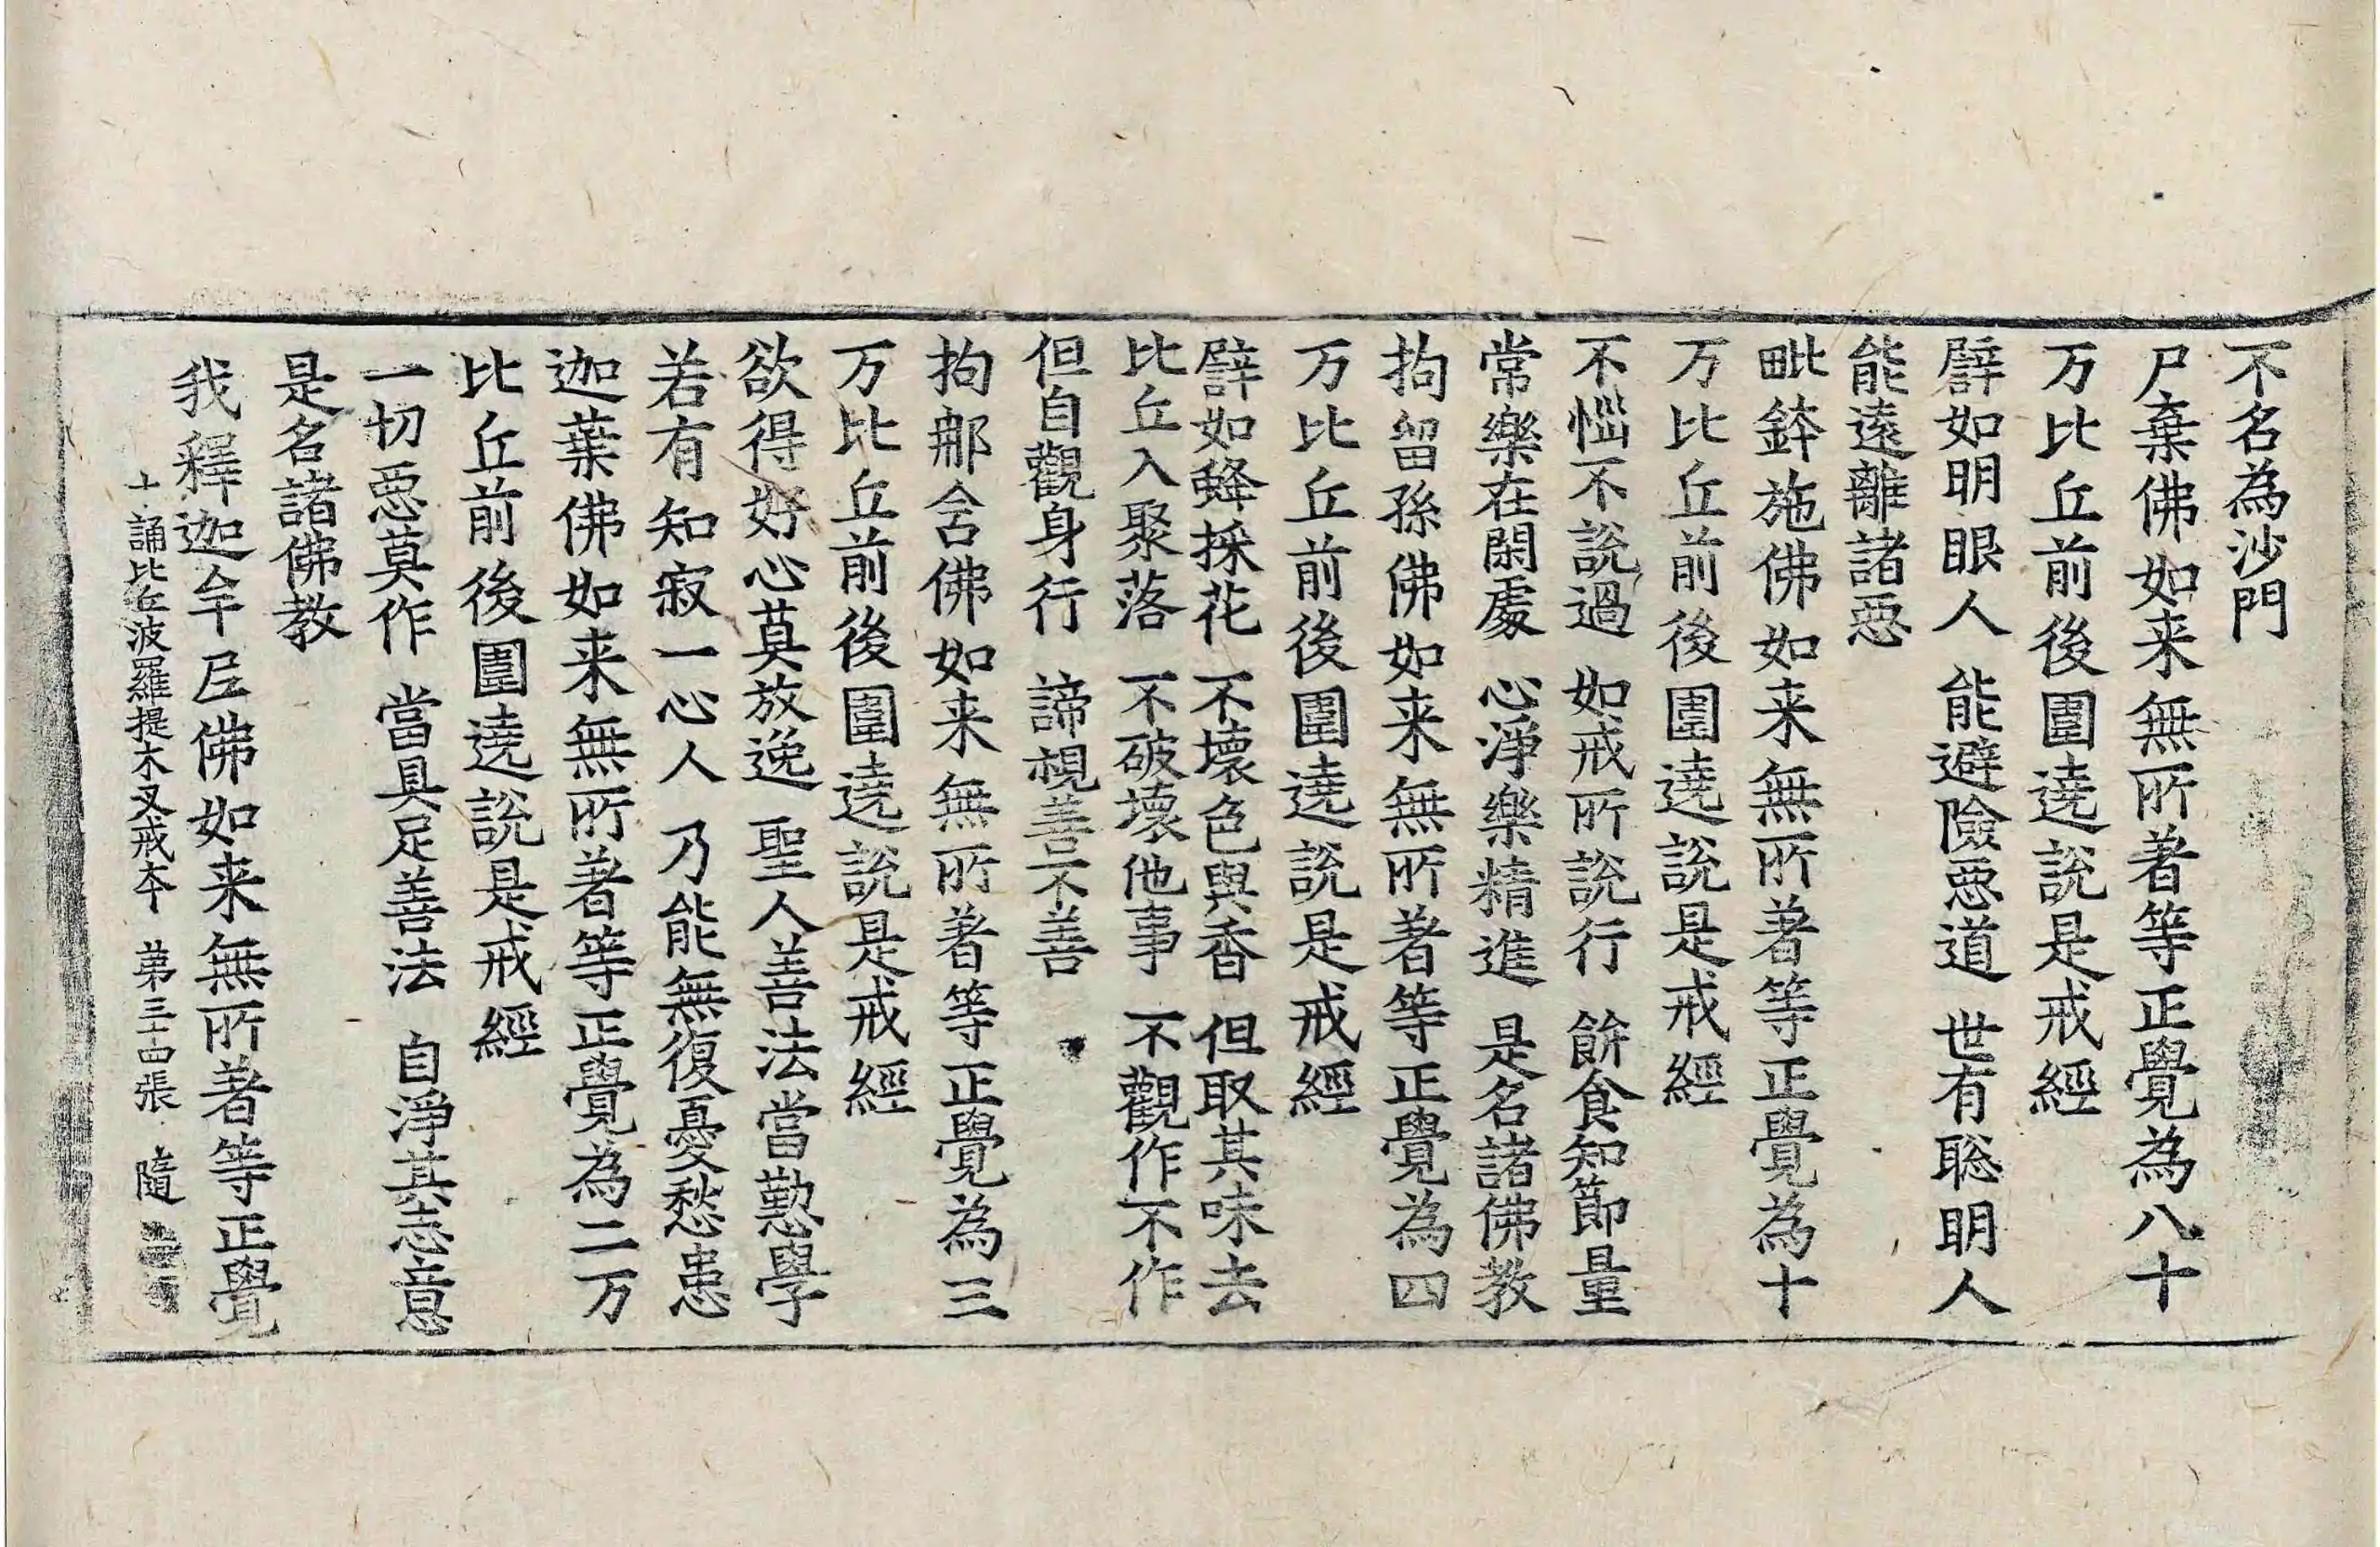 不名為沙門
尸棄佛如来無所著等正覺為八十
万比丘前後圍遶說是戒經
譬如明眼人 能避險惡道 世有聡明人
能遠離諸惡
毗鉢施佛如来無所著等正覺為十
万比丘前後圍遶說是戒經
不惱不說過 如戒所說行 餅食知節量
常樂在閑處 心淨樂精進 是名諸佛教
拘留孫佛如来無所著等正覺為四
万比丘前後圍遶說是戒經
譬如蜂採花 不壞色與香 但取其味去
比丘入聚落 不破壞他事 不觀作不作
但自觀身行 諦視善不善
拘那含佛如来無所著等正覺為三
万比丘前後圍遶說是戒經
欲得好心莫放逸 聖人善法當懃學
若有知寂一心人 乃能無復憂愁患
迦葉佛如来無所著等正覺為二万
比丘前後圍遶說是戒經
一切惡莫作 當具足善法 自淨其志意
是名諸佛教
我釋迦牟尼佛如来無所著等正覺
十誦比丘波羅提木叉戒本 第三十四張 隨